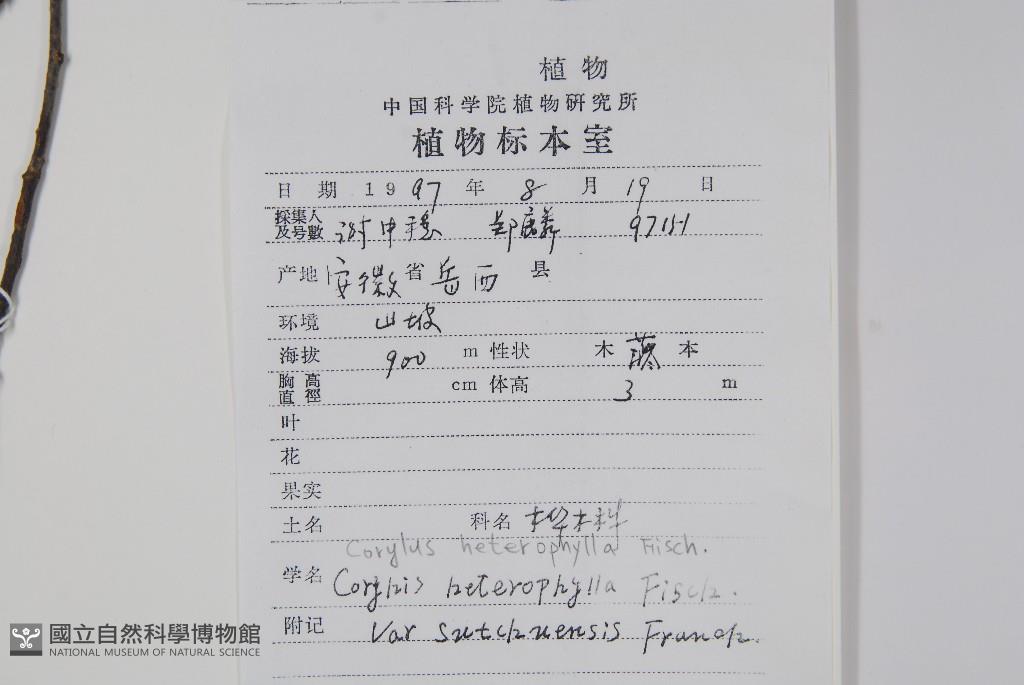 植物
中国科学院植物研究所
植物标本室
日期 1997 年 8 月 19 日
採集人及号數 谢中稳 郑 97151
产地 安徽省岳西县
环境 山坡
海拔 900 m 性状 木 本
胸高直徑 cm 体高 3 m
叶
花
果实
土名 科名 桦木科
Corylus heterophylla Fisch.
学名 Corylus heterophylla Fisch.
附记 Var sutchuensis Franch.
國立自然科學博物館
NATIONAL MUSEUM OF NATURAL SCIENCE